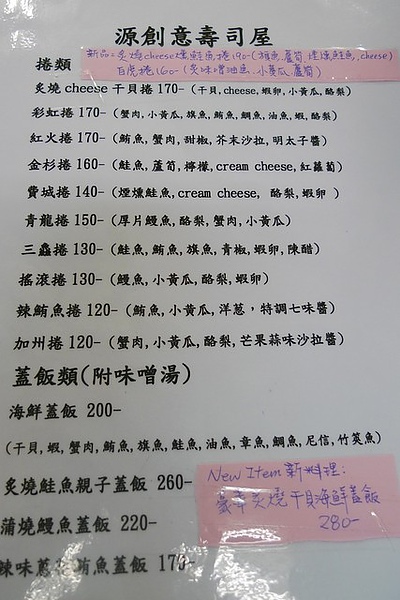 源創意壽司屋
捲類
新品:炙燒cheese燻鮭魚捲190-(旗魚,蘆筍,煙燻鮭魚,cheese)
白虎捲160-(炙味噌油魚,小黃瓜,蘆筍)
炙燒 cheese 干貝捲 170-(干貝,cheese,蝦卵,小黃瓜,酪梨)
彩虹捲 170-(蟹肉,小黃瓜,旗魚,鮪魚,鯛魚,油魚,蝦,酪梨)
紅火捲 170-(鮪魚,蟹肉,甜椒,芥末沙拉,明太子醬)
金杉捲 160-(鮭魚,蘆筍,檸檬,cream cheese,紅蘿蔔)
費城捲 140-(煙燻鮭魚,cream cheese, 酪梨,蝦卵 )
青龍捲 150-(厚片鰻魚,酪梨,蟹肉,小黃瓜)
三蟲捲 130-(鮭魚,鮪魚,旗魚,青椒,蝦卵,陳醋)
搖滾捲 130-(鰻魚,小黃瓜,酪梨,蝦卵)
辣鮪魚捲 120-(鮪魚,小黃瓜,洋蔥,特調七味醬)
加州捲 120-(蟹肉,小黃瓜,酪梨,芒果蒜味沙拉醬)
蓋飯類(附味噌湯)
海鮮蓋飯 200-
(干貝,蝦,蟹肉,鮪魚,旗魚,鮭魚,油魚,章魚,鯛魚,尼信,竹莢魚)
炙燒鮭魚親子蓋飯 260-
蒲燒鰻魚蓋飯 220-
辣味蔥花鮪魚蓋飯 170-
New Item 新料理:
豪華炙燒干貝海鮮蓋飯
280-